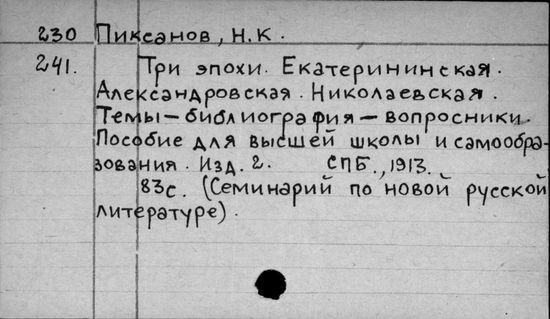 230 Пиксанов, Н.К.
241. Три эпохи. Екатерининская.
Александровская. Николаевская.
Темы – библиография – вопросники.
Пособие для высшей школы и самообра-
зования. Изд. 2. СПБ., 1913.
83с. (Семинарий по новой русской
литературе).